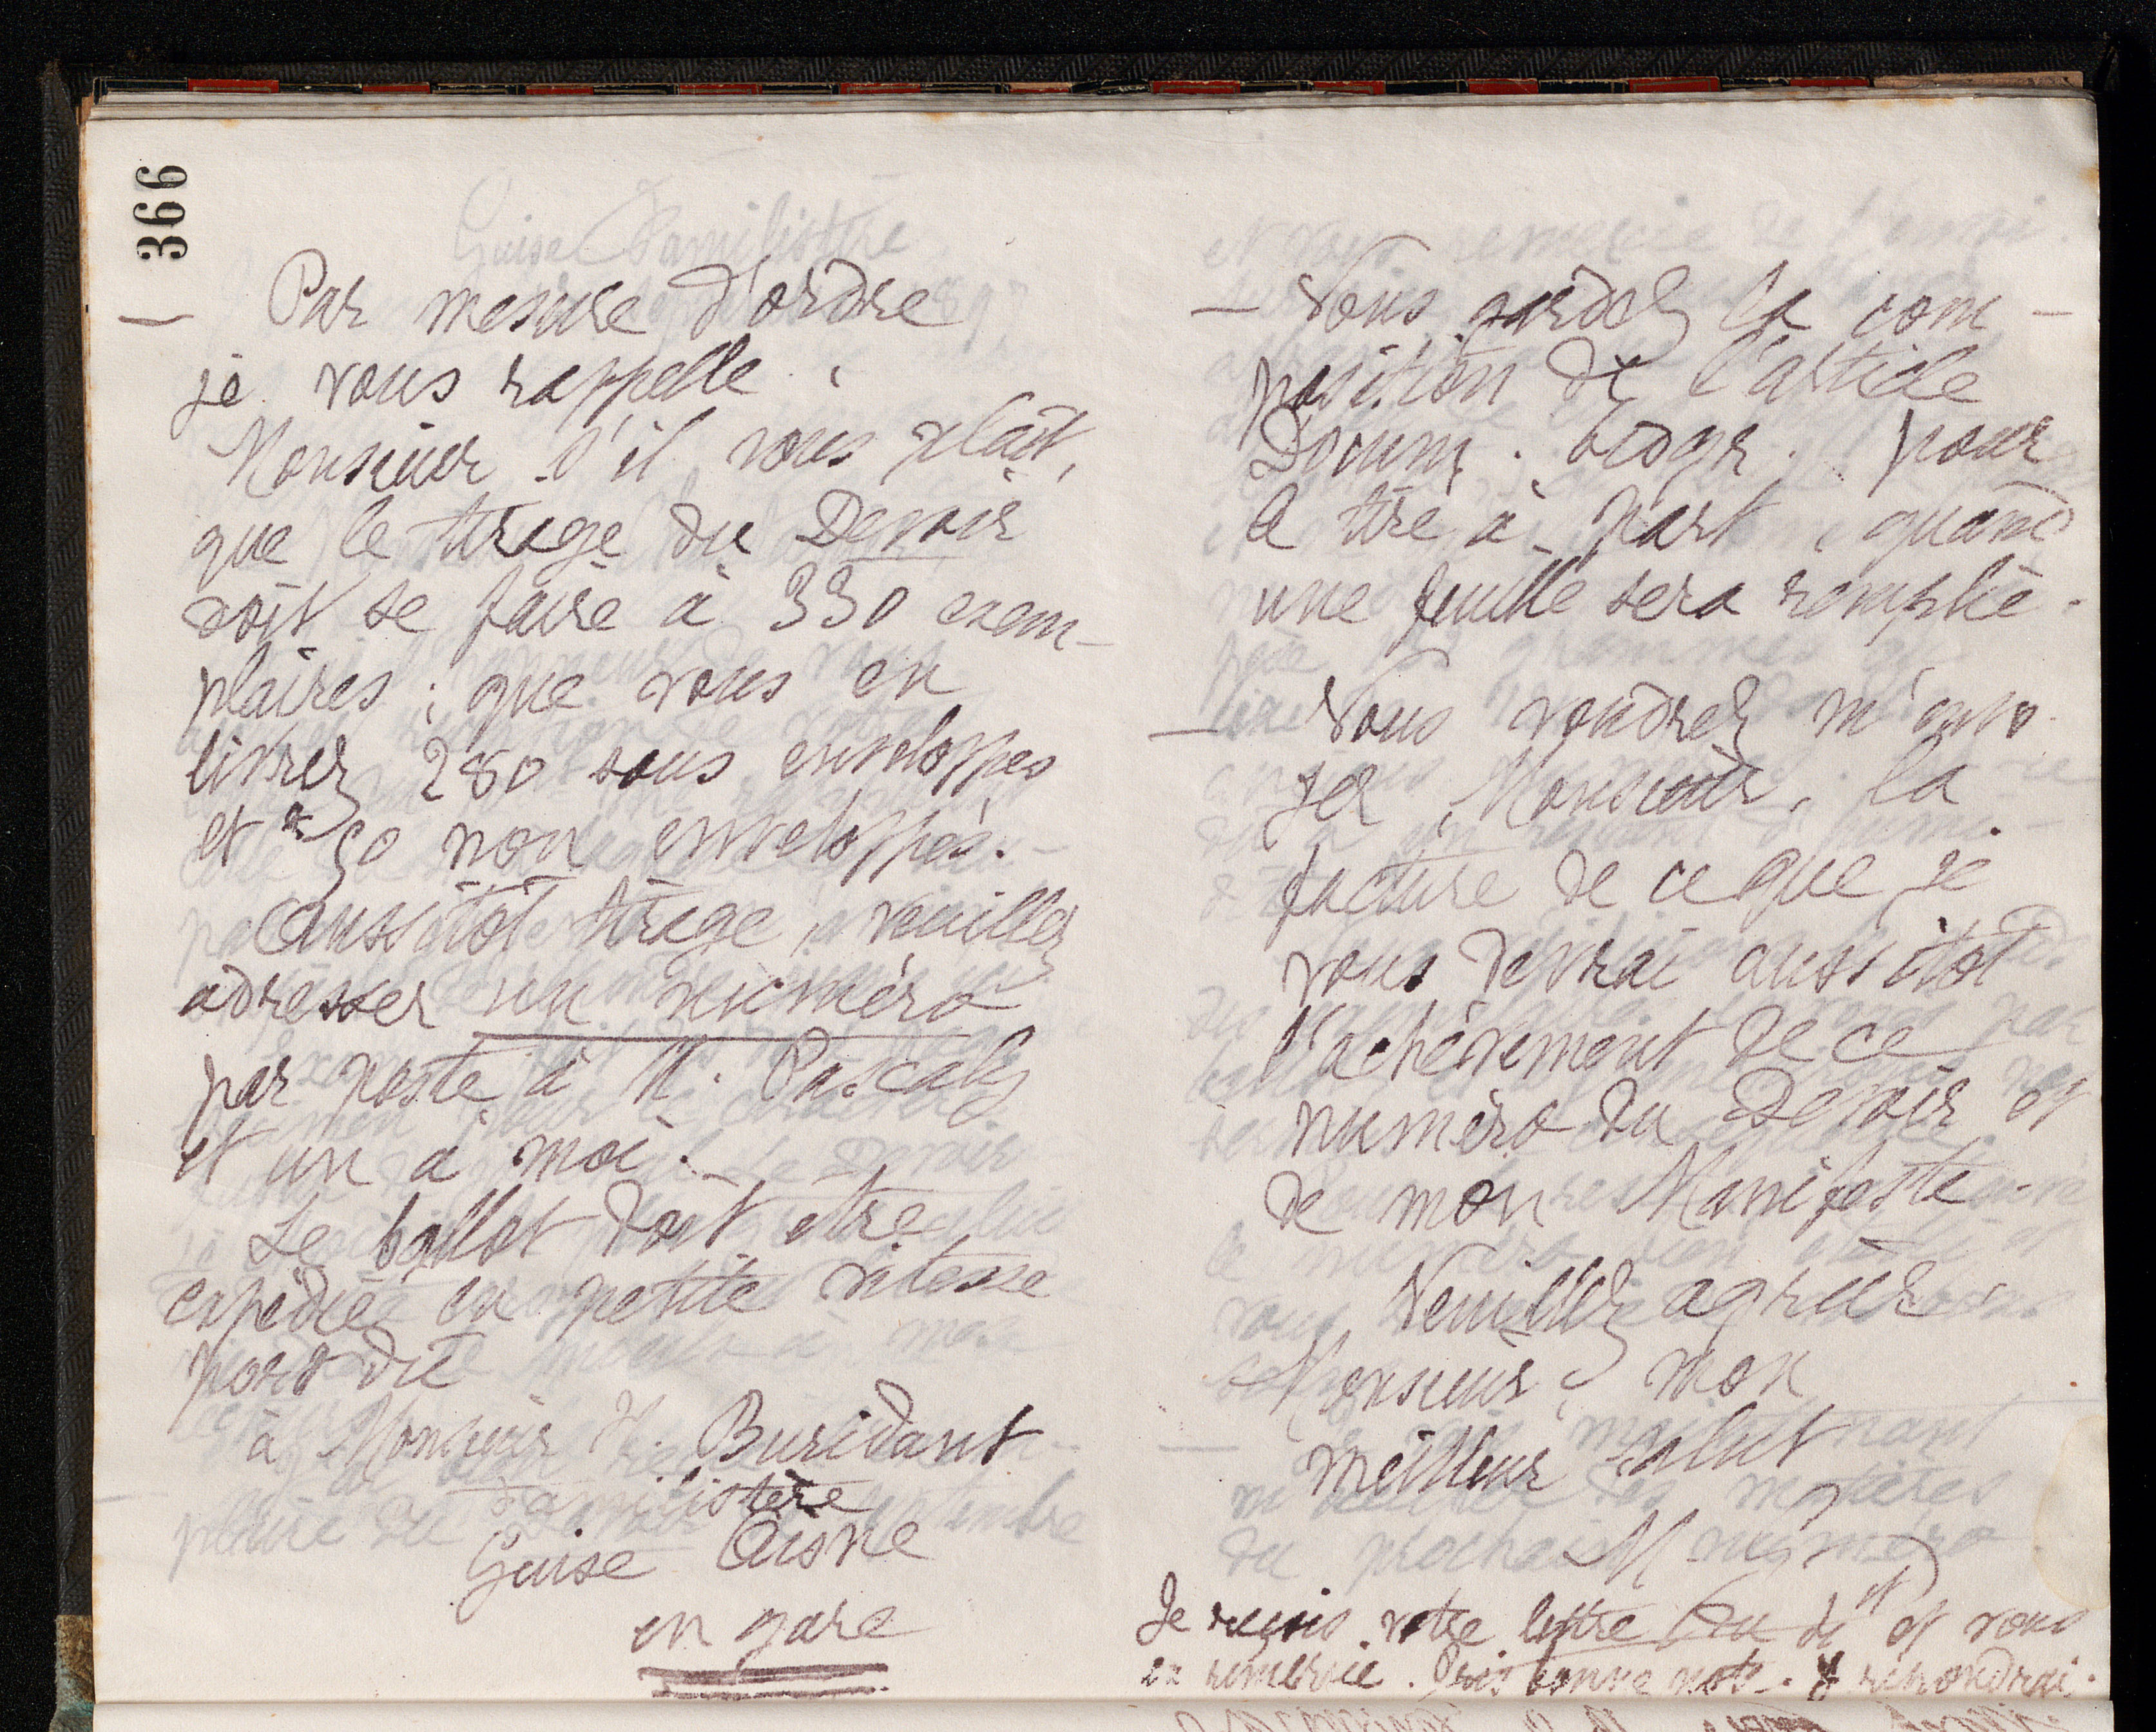 366
— Par mesure d'ordre
je vous rappelle,
Monsieur s'il vous plaît,
que le tirage du Devoir
doit se faire à 330 exem-
plaires ; que vous en
livrez 280 sous enveloppes
et 50 non enveloppés.
Aussitôt tirage, veuillez
adresser un numéro
par poste à M. Pascaly
et un à moi.
Le ballot doit être
expédié en petite vitesse
port dû
à Monsieur H. Buridant
Familistère
Guise Aisne
en gare
— Vous gardez la com-
position de l'article
Docum. biogr. pour
le tiré à part, quand
une feuille sera remplie.
— Vous voudrez m'envo
yer, Monsieur, la
facture de ce que je
vous devrai aussitôt
l'achèvement de ce
numéro du Devoir et
de mon Manifeste.
Veuillez agréer,
Monsieur, mon
meilleur salut
Je reçois votre lettre et vous
en remercie. Pris bonne note. & répondrai.